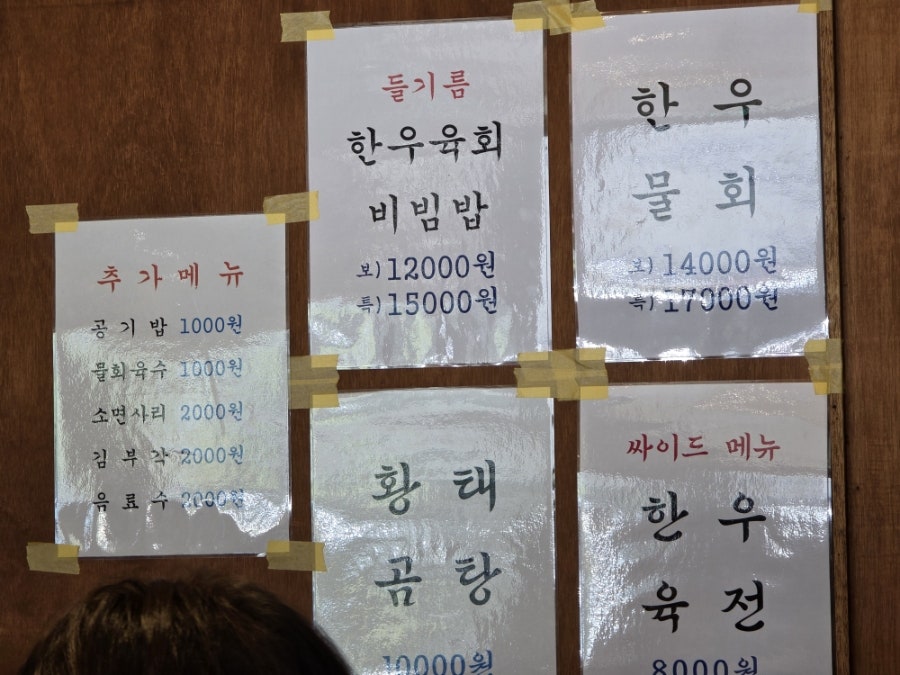 들기름
한우육회
비빔밥
보) 12000원
특) 15000원
한 우
물 회
보) 14000원
특) 17000원
추 가 메 뉴
공 기 밥 1000원
물회육수 1000원
소면사리 2000원
김 부 각 2000원
음 료 수 2000원
황 태
곰 탕
10000원
싸이드 메뉴
한 우
육 전
8000원